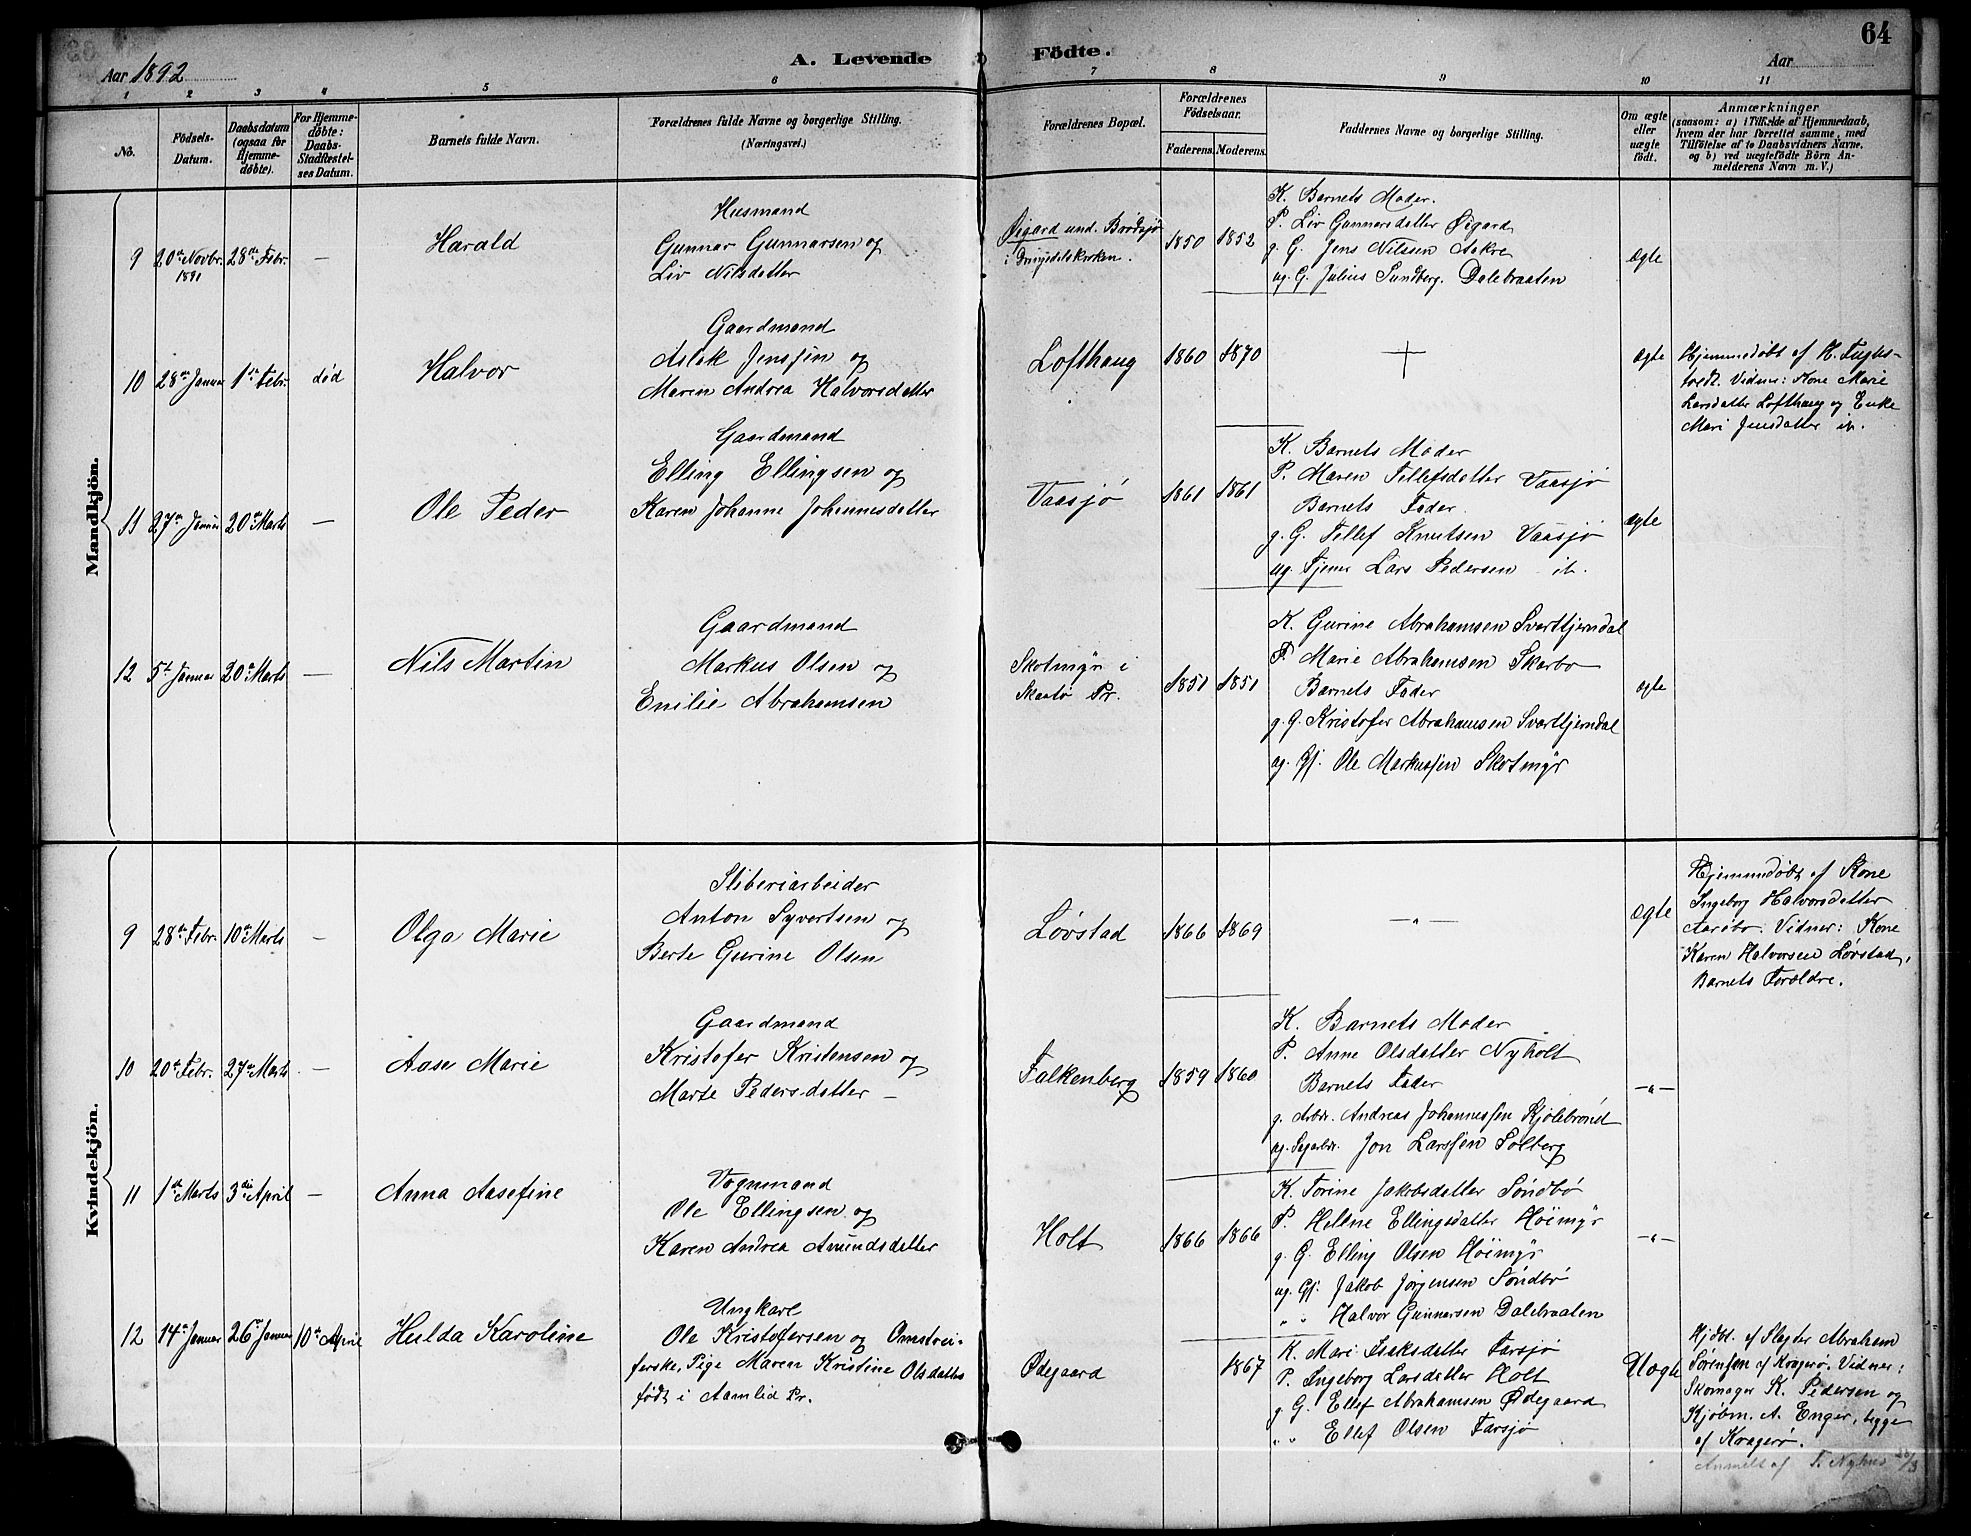 64
Aar 1892
A. Levende
Födte.
Aar
1 2 3 4 5 6 7 8 9 10 11
No.
Födsels-Datum.
Daabsdatum (ogsaa for Hjemme-döbte).
For Hjemme-döbte: Daabs-Stadfæstel-ses Datum.
Barnets fulde Navn.
Forældrenes fulde Navne og borgerlige Stilling.
(Næringsvei.)
Forældrenes Bopæl.
Forældrenes Födselsaar.
Faderens. Moderens.
Faddernes Navne og borgerlige Stilling.
Om ægte eller uægte födt.
Anmærkninger
(saasom: a) i Tilfælde af Hjemmedaab,
hvem der har forrettet samme, med
Tilföielse af to Daabsvidners Navne,
og b) ved uægtefödte Börn An-
melderens Navn m. V.)
Mandkjön.
9 20de Novbr. 1891 28de Febr. —
Harald
Husmand
Gunnar Gunnarsen og
Liv Nilsdatter
Øigard und. Brødsjø
i Drangedalskirken.
1850 1852
K. Barnets Moder.
P. Liv Gunnarsdatter Øigard
g. G. Jens Nilsen Aakre
ug. G. Julius Sundberg. Dalebraaten
ægte
10 28de Januar 1ste Febr. død
Halvor
Gaardmand
Aslak Jenssen og
Maren Andrea Halvorsdatter
Lofthaug
1860 1870
†
ægte
Hjemmedøbt af H. Fugle-
tvedt. Vidner: Kone Marie
Larsdatter Lofthaug og Enke
Mari Jensdatter ib.
11 27de Januar 20de Marts —
Ole Peder
Gaardmand
Elling Ellingsen og
Karen Johanne Johannesdatter
Vaasjø
1861 1861
K. Barnets Moder
P. Maren Tellefsdatter Vaasjø
Barnets Fader.
g. G. Tellef Knutsen Vaasjø
ug. Tjener Lars Pedersen ib.
ægte
12 5te Januar 20de Marts —
Nils Martin
Gaardmand
Markus Olsen og
Emilie Abrahamsen
Skotmyr i
Skaatø Pr.
1851 1851
K. Gurine Abrahamsen Svarttjerndal
P. Marie Abrahamsen Skarbo
Barnets Fader
g. G. Kristofer Abrahamsen Svarttjerndal
ug. Gj. Ole Markussen Skotmyr
ægte
Kvindekjön.
9 28de Febr. 10de Marts —
Olga Marie
Sliberiarbeider
Anton Syvertsen og
Berte Gurine Olsen
Løvstad
1866 1869
— „ —
ægte
Hjemmedøbt af Kone
Ingeborg Halvorsdatter
Aarøbo. Vidner: Kone
Karen Halvorsen Løvstad,
Barnets Forældre.
10 20de Febr. 27de Marts —
Aase Marie
Gaardmand
Kristofer Kristensen og
Marte Pedersdatter —
Falkenberg
1859 1860
K. Barnets Moder
P. Anne Olsdatter Nyholt
Barnets Fader
g. Arbdr. Andreas Johannessen Kjølebrønd
ug. Sagarbdr. Jon Larssen Solberg
— „ —
11 1ste Marts 3die April —
Anna Aasefine
Vognmand
Ole Ellingsen og
Karen Andrea Amundsdatter
Holt
1866 1866
K. Torine Jakobsdatter Søndbø
P. Hellene Ellingsdatter Høimyr
g. G. Elling Olsen Høimyr
ug. Gj. Jakob Jørgensen Søndbø
„ „ Halvor Gunnarsen Dalebraaten
— „ —
12 14de Januar 26de Januar 10de April
Hulda Karoline
Ungkarl
Ole Kristofersen og Omstrei-
ferske, Pige Maren Kristine Olsdatter
født i Aamlid Pr.
Ødegaard
1867
K. Mari Isaksdatter Farsjø
P. Ingeborg Larsdatter Holt
g. G. Ellef Abrahamsen Ødegaard
„ „ Ellef Olsen Farsjø
Uægte
Hjdbt. af Slagter Abraham
Sørensen af Kragerø. Vidner:
Skomager K. Pedersen og
Kjøbm. A. Enger, begge
af Kragerø.
Anmeldt af T. Nyhus 20/3